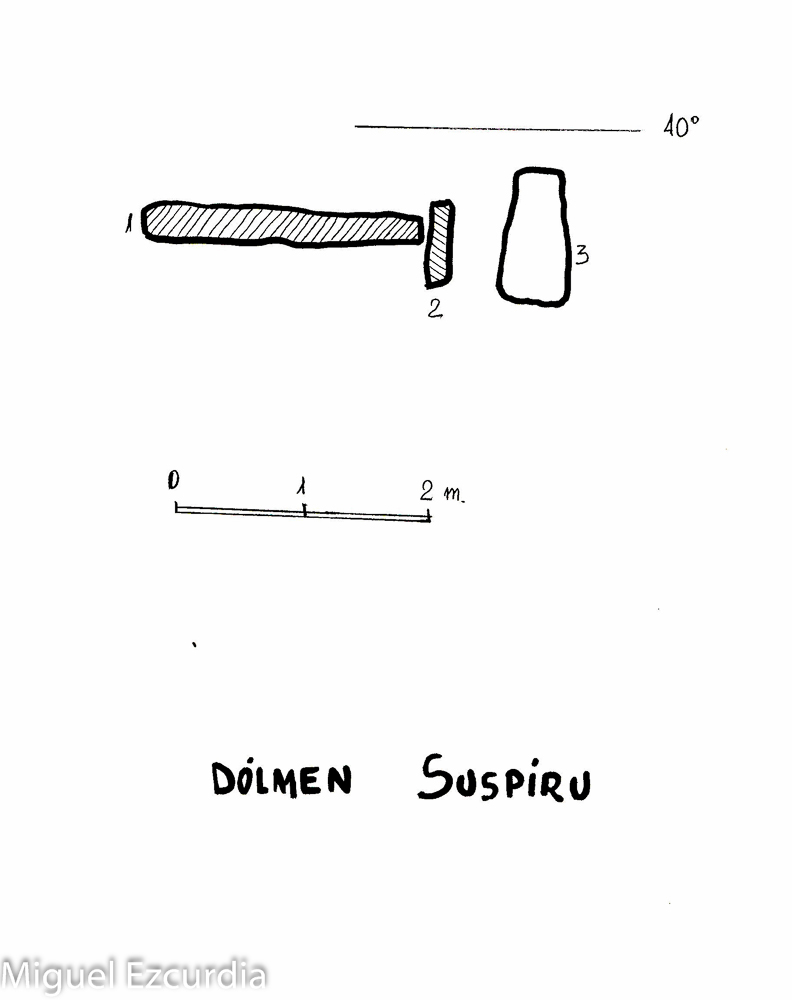 40°
1
3
2
0 1 2 m.
DÓLMEN SUSPÍRU
Miguel Ezcurdia